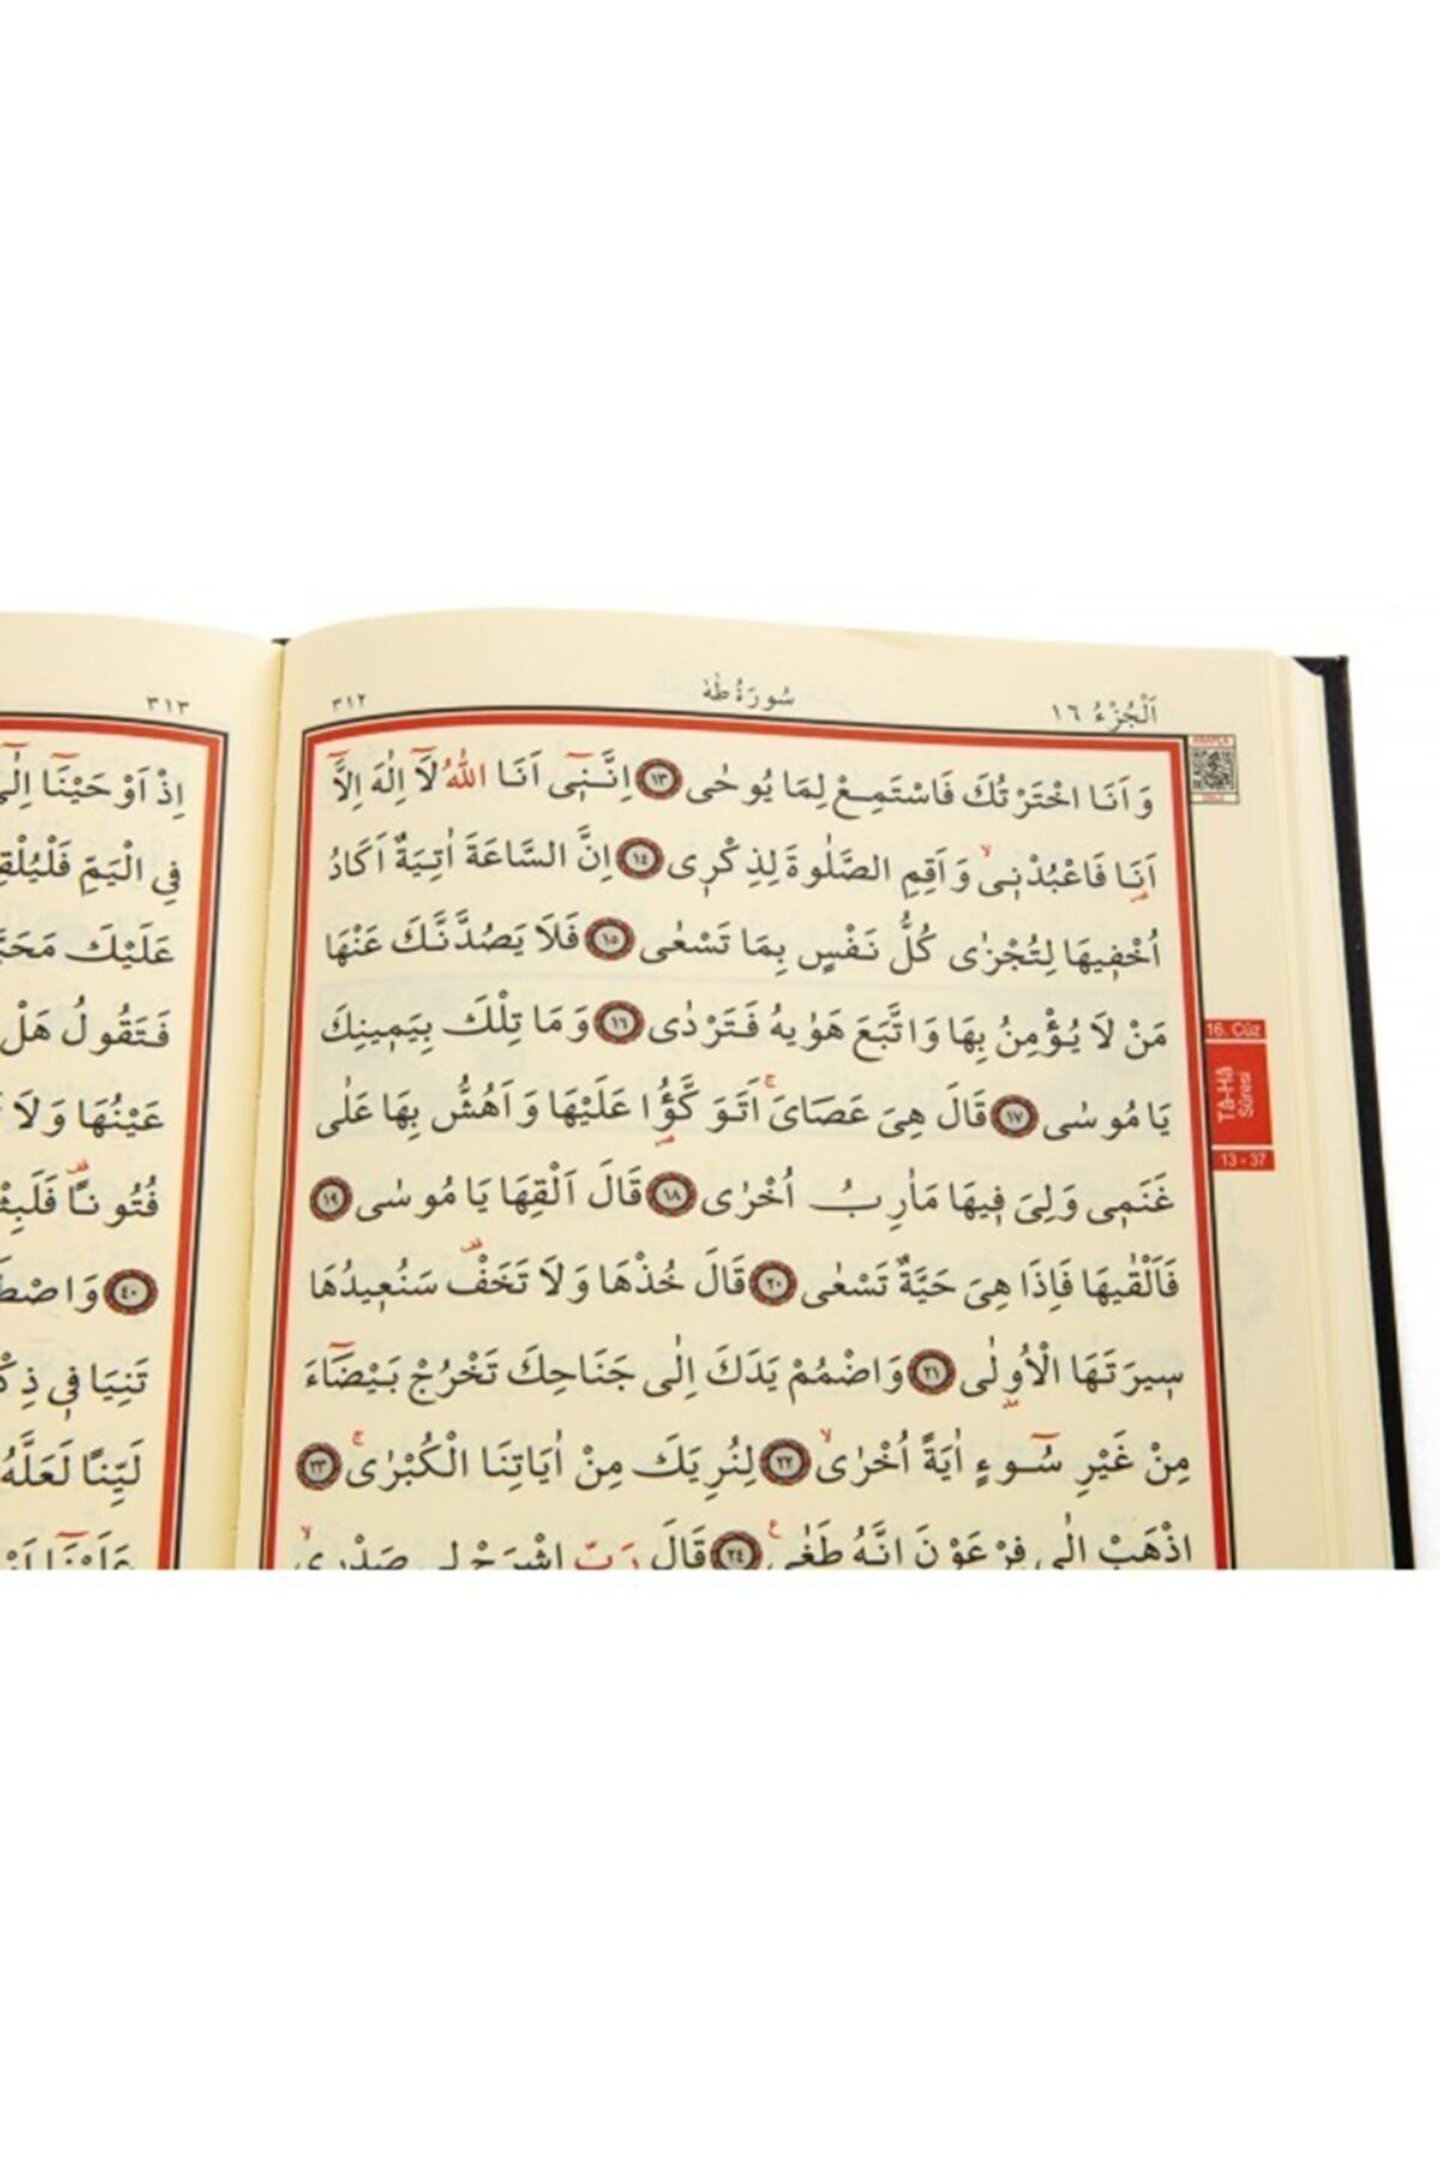 اَلْجُزْءُ ١٦
سُورَةُ طٰهٰ
٣١٢
وَاَنَا اخْتَرْتُكَ فَاسْتَمِعْ لِمَا يُوحٰى ١٣ اِنَّنٖٓى اَنَا اللّٰهُ لَٓا اِلٰهَ اِلَّٓا
اَنَا۬ فَاعْبُدْنٖىۙ وَاَقِمِ الصَّلٰوةَ لِذِكْرٖى ١٤ اِنَّ السَّاعَةَ اٰتِيَةٌ اَكَادُ
اُخْفٖيهَا لِتُجْزٰى كُلُّ نَفْسٍ بِمَا تَسْعٰى ١٥ فَلَا يَصُدَّنَّكَ عَنْهَا
مَنْ لَا يُؤْمِنُ بِهَا وَاتَّبَعَ هَوٰيهُ فَتَرْدٰى ١٦ وَمَا تِلْكَ بِيَمٖينِكَ
يَا مُوسٰى ١٧ قَالَ هِىَ عَصَاىَۚ اَتَوَكَّؤُ۬ا عَلَيْهَا وَاَهُشُّ بِهَا عَلٰى
غَنَمٖى وَلِىَ فٖيهَا مَاٰرِبُ اُخْرٰى ١٨ قَالَ اَلْقِهَا يَا مُوسٰى ١٩
فَاَلْقٰيهَا فَاِذَا هِىَ حَيَّةٌ تَسْعٰى ٢٠ قَالَ خُذْهَا وَلَا تَخَفْ۠ سَنُعٖيدُهَا
سٖيرَتَهَا الْاُو۫لٰى ٢١ وَاضْمُمْ يَدَكَ اِلٰى جَنَاحِكَ تَخْرُجْ بَيْضَٓاءَ
مِنْ غَيْرِ سُٓوءٍ اٰيَةً اُخْرٰىۙ ٢٢ لِنُرِيَكَ مِنْ اٰيَاتِنَا الْكُبْرٰىۚ ٢٣
اِذْهَبْ اِلٰى فِرْعَوْنَ اِنَّهُ طَغٰىۚ ٢٤ قَالَ رَبِّ اشْرَحْ لٖى صَدْرٖىۙ
16. Cüz
Tâ-Hâ
Sûresi
13 - 37
٣١٣
اِذْ اَوْحَيْنَٓا اِلٰٓى
فِى الْيَمِّ
عَلَيْكَ
فَتَقُولُ هَلْ
عَيْنُهَا وَلَا
فُتُونًا۠
٤٠
تَنِيَا فٖى
لَيِّنًا لَعَلَّهُ
عَلَيْنَٓا